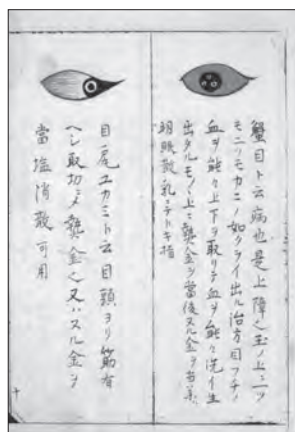 蟹目ト云病也是上障之玉ノ上ニツ
モニリモカニノ如クライ出ル治方目フチノ
血ヲ能々上下ヲ取リテ血ヲ能々洗イ生
出タルモノノ上ニ熨金ヲ當後又ル金ヲ當
明眼散ノ乳ニテトキ指
目尾ユカミト云目頭ヨリ筋有
ヘシ取切ニメ熨金之又ハスル金ヲ
當塩消散可用
十